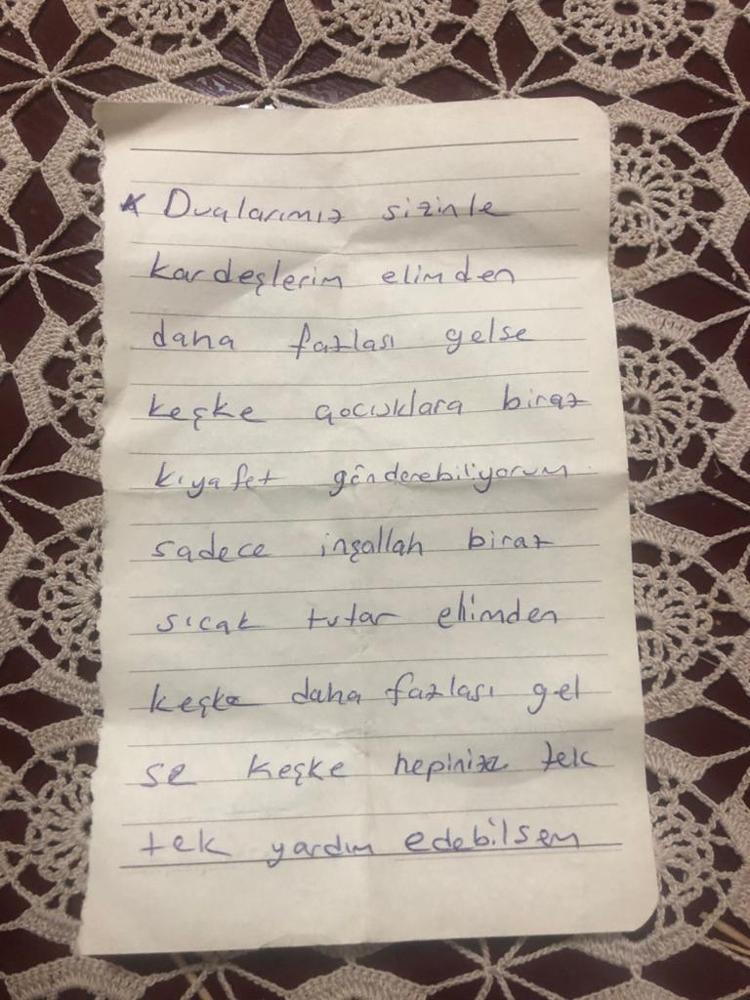 * Dualarımız sizinle
kardeşlerim elimden
daha fazlası gelse
keşke çocuklara biraz
kıyafet gönderebiliyorum
sadece inşallah biraz
sıcak tutar elimden
keşke daha fazlası gel
se keşke hepinize tek
tek yardım edebilsem